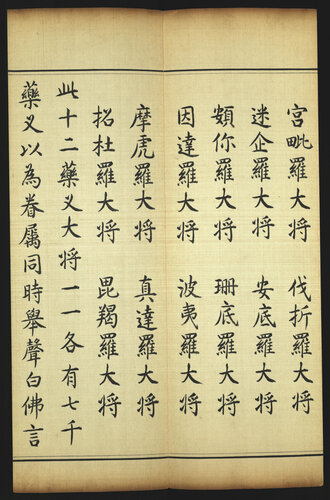 宫毗羅大将 伐折羅大将
迷企羅大将 安底羅大将
頞你羅大将 珊底羅大将
因達羅大将 波夷羅大将
摩虎羅大将 真達羅大将
招杜羅大将 毘羯羅大将
此十二藥叉大将一一各有七千
藥叉以為眷屬同時舉聲白佛言